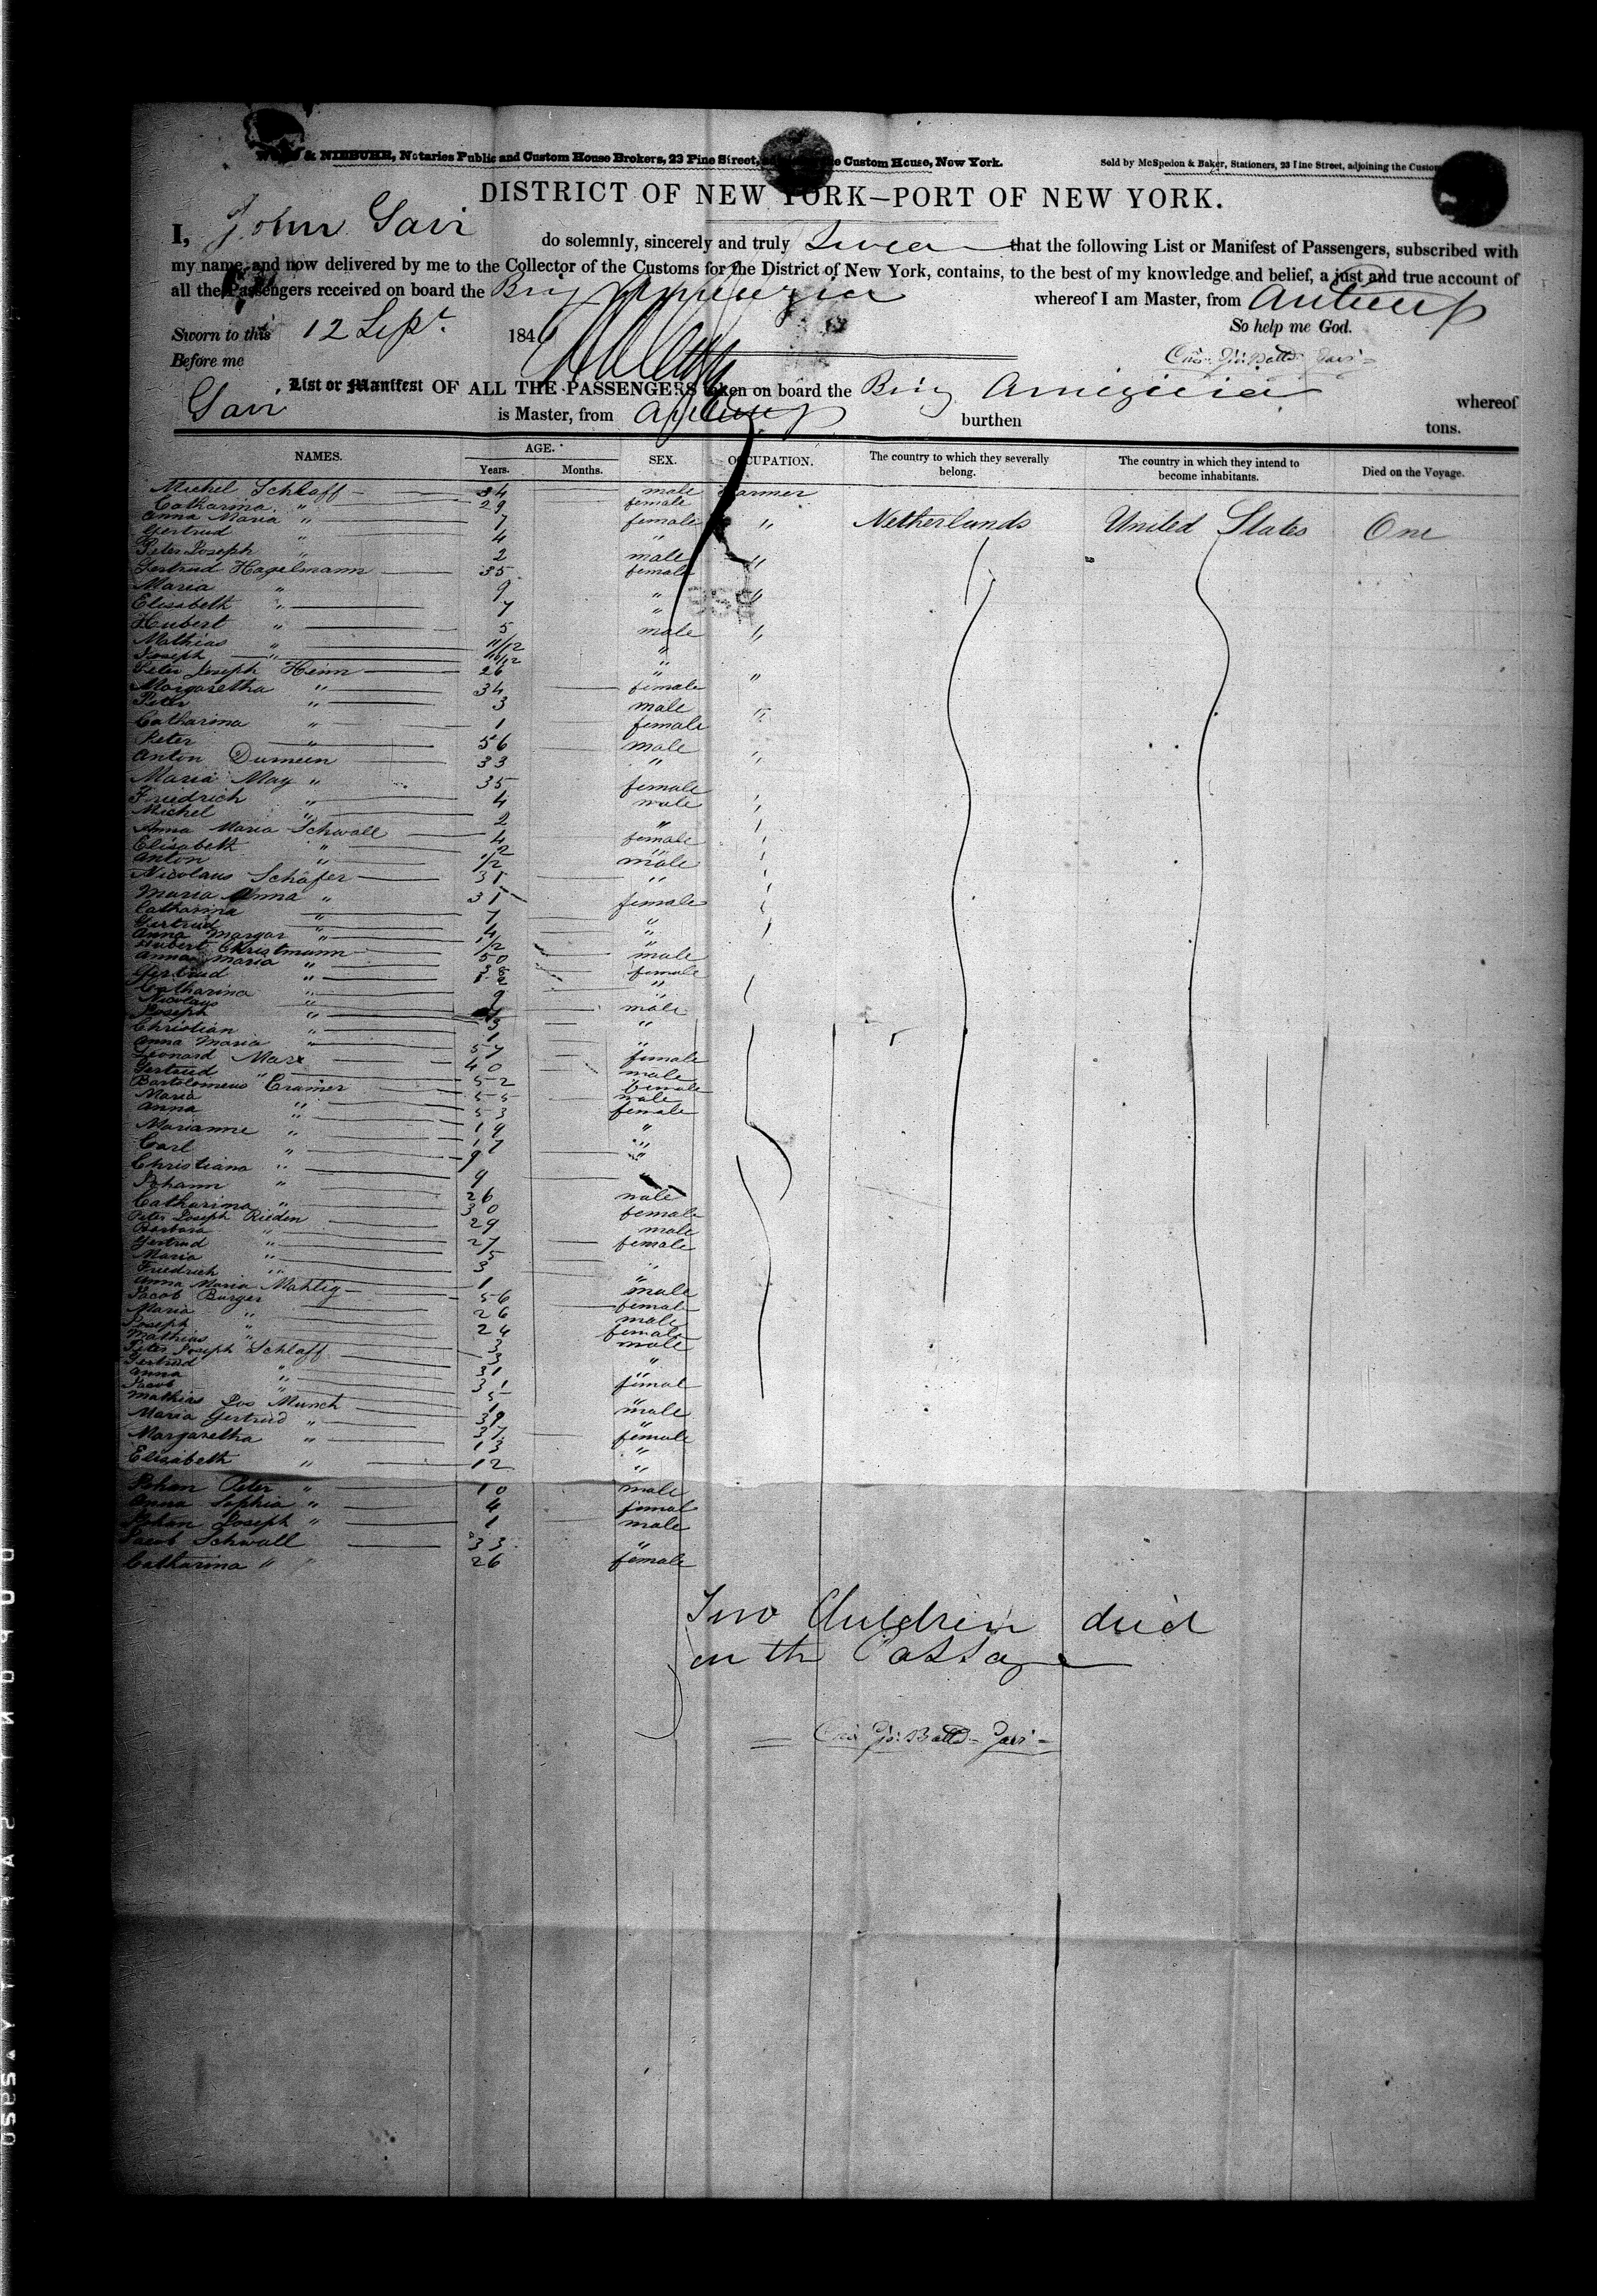 & NIEBUHR, Notaries Public and Custom House Brokers, 23 Pine Street, Custom House, New York.
Sold by McSpedon & Baker, Stationers, 23 Pine Street, adjoining the Custom
DISTRICT OF NEW YORK—PORT OF NEW YORK.
I, John Gavi do solemnly, sincerely and truly Swear that the following List or Manifest of Passengers, subscribed with
my name, and now delivered by me to the Collector of the Customs for the District of New York, contains, to the best of my knowledge and belief, a just and true account of
all the Passengers received on board the Brig whereof I am Master, from Antwerp
Sworn to this 12 Sept. 1846 So help me God.
Before me
List or Manifest OF ALL THE PASSENGERS taken on board the Brig whereof
Gavi is Master, from Antwerp burthen tons.
NAMES. AGE. SEX. OCCUPATION. The country to which they severally belong. The country in which they intend to become inhabitants. Died on the Voyage.
Years. Months.
Michel Schlaff 34 male Farmer
Catharina " 29 female
Anna Maria " 7 female " Netherlands United States One
Gertrud " 4 "
Peter Joseph " 2 male "
Gertrud Hagelmann 35 female
Maria " 9 " "
Elisabeth " 7 "
Hubert " 5 male "
Mathias " 11/12 "
Joseph " 11/12 "
Peter Joseph Heinn 26 " "
Margaretha " 34 female
Peter " 3 male "
Catharina " 1 female
Peter " 56 male "
Anton Dumeen 33 "
Maria May " 35 female
Friedrich " 4 male
Michel " 2 "
Anna Maria Schwall 4 female
Elisabeth " 2 "
Anton " 1/2 male
Nicolaus Schäfer 31 "
Maria Anna " 31 female
Catharina " 7 "
Gertrud " 4 "
Anna Margar " 1/2 "
Hubert Christmann 50 male
Anna Maria " 38 female
Gertrud " 12 "
Catharina " 9 "
Nicolaus " male
Joseph " 3 "
Christian " 1 "
Anna Maria " 57 female
Leonard Marx 40 male
Gertrud " 52 female
Bartolomeus Cramer 55 male
Maria " 53 female
Anna " 19 "
Marianne " 17 "
Carl " 9 "
Christiana " 9 "
Johann " 26 male
Catharina " 30 female
Peter Joseph Rieden 29 male
Barbara " 27 female
Gertrud " 5
Maria " 3 "
Friedrich " 1 male
Anna Maria Mahlig 56 female
Jacob Burger 26 male
Maria " 24 female
Joseph " 3 male
Mathias " "
Peter Joseph Schlaff 31
Gertrud " 31 female
Anna " 5 "
Jacob " 1 male
Mathias Jos Munch 39 "
Maria Gertrud " 37 female
Margaretha " 13 "
Elisabeth " 12 "
Johan Peter " 10 male
Anna Sophia " 4 femal
Johan Joseph " 1 male
Jacob Schwall 33 "
Catharina " 26 female
Two Children died
on the Passage